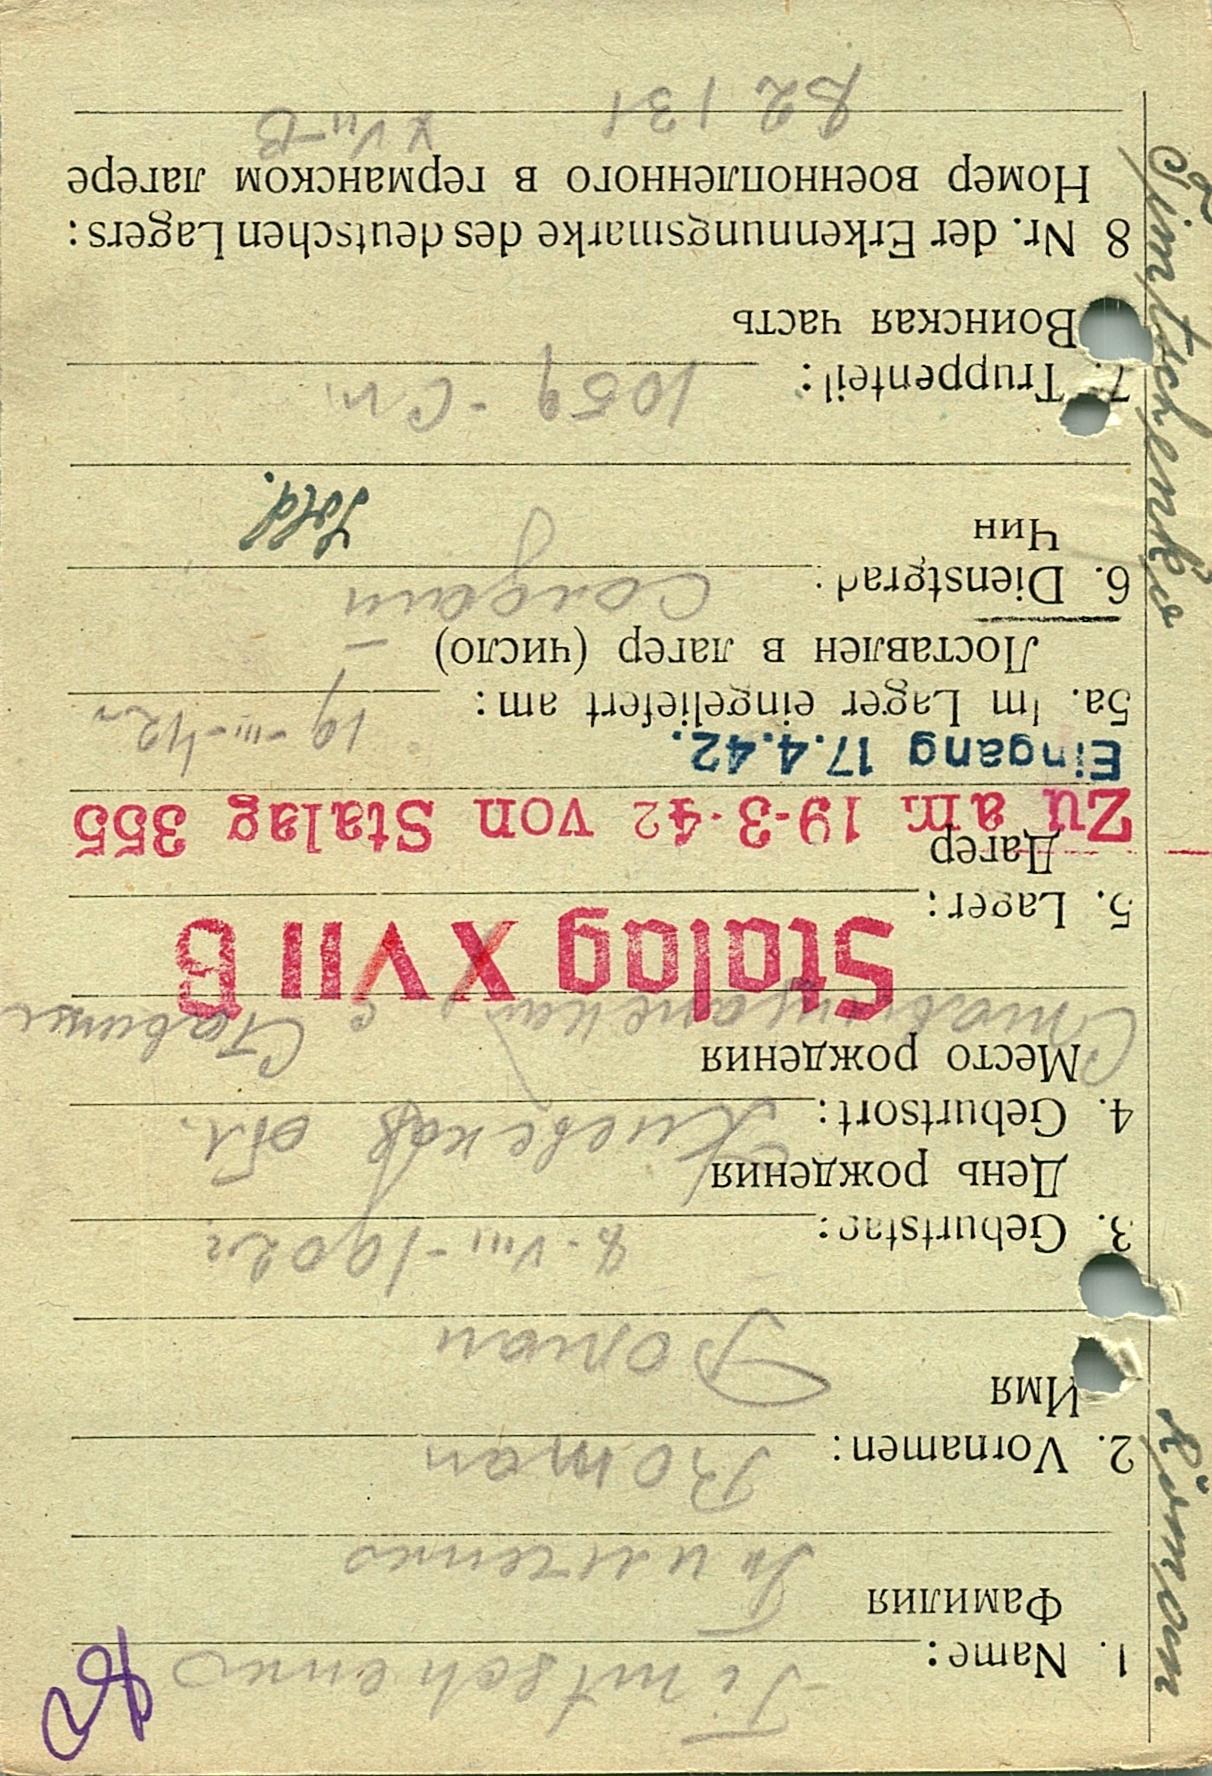 Timtschenko Roman
1. Name: Timtschenko
Фамилия Тимченко
2. Vornamen: Roman
Имя Роман
3. Geburtstag: 8-VIII-1902г
День рождения
4. Geburtsort: Киевская обл.
Место рождения
с Ставище
Stalag XVII B
5. Lager:
Лагер
Zu am 19-3-42 von Stalag 355
Eingang 17.4.42.
5a. Im Lager eingeliefert am: 19-III-42г
Доставлен в лагер (число)
6. Dienstgrad: Солдат
Чин Sold.
7. Truppenteil: 1059 - Сп.
Воинская часть
8 Nr. der Erkennungsmarke des deutschen Lagers:
Номер военнопленного в германском лагере
XVII-B
82131